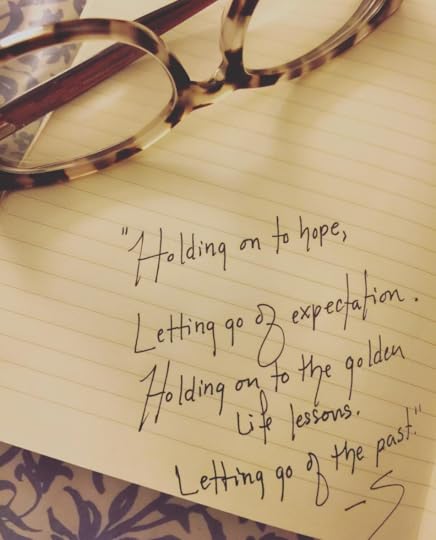 "Holding on to hope,
Letting go of expectation.
Holding on to the golden
Life lessons.
Letting go of the past."
-S